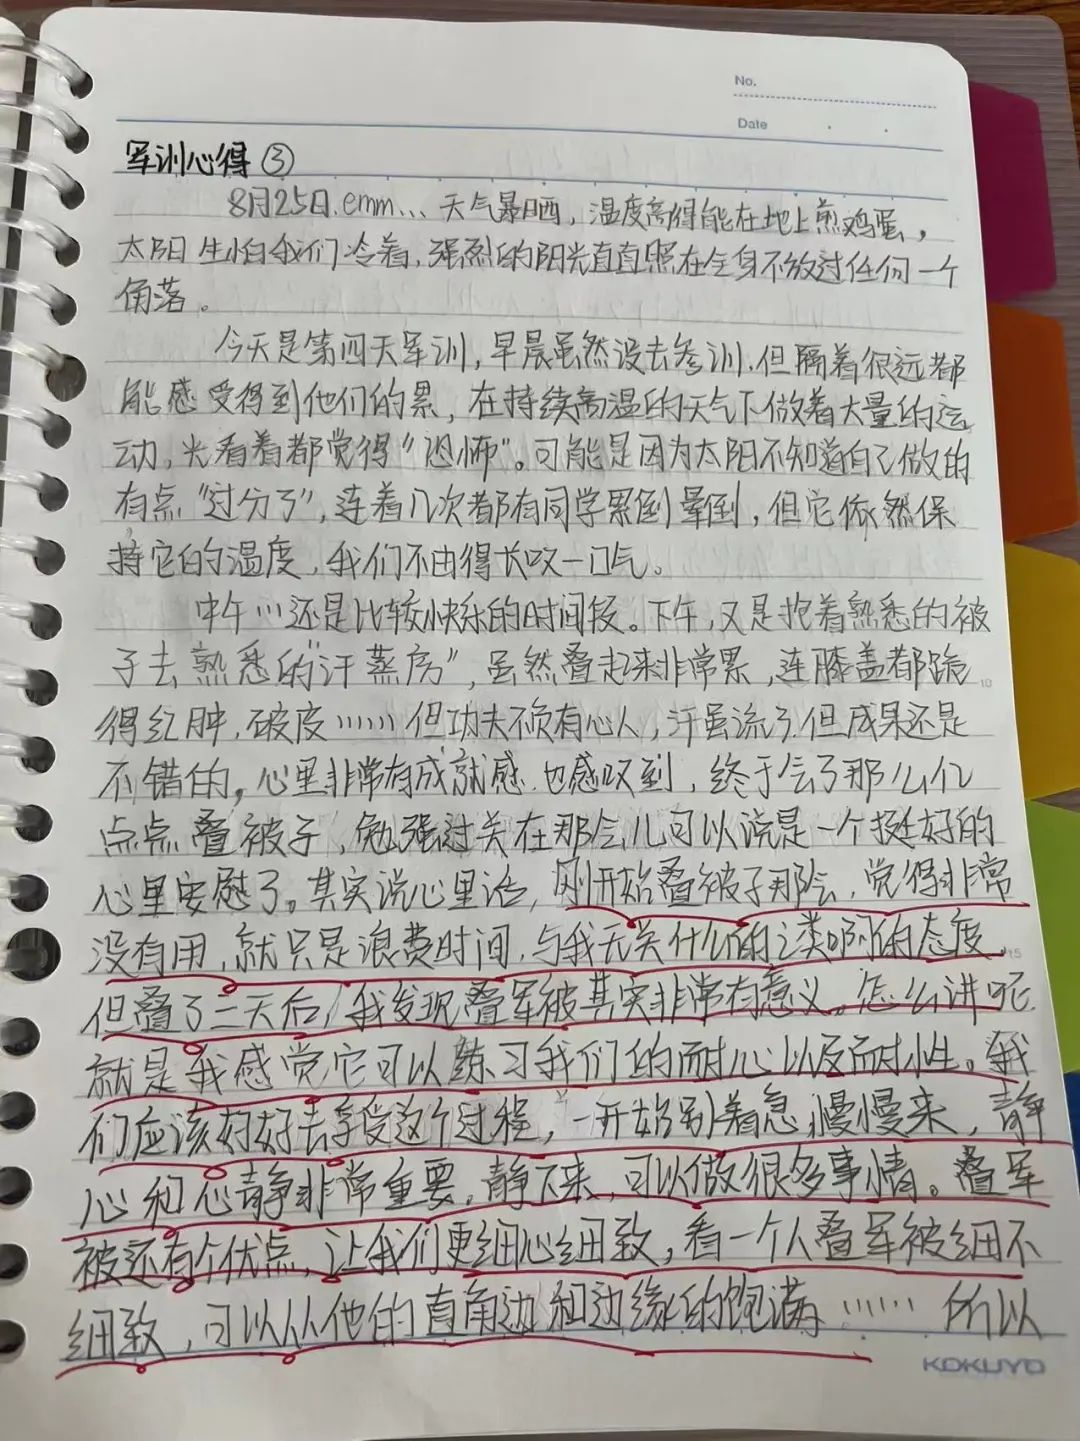 No.
Date
军训心得③
8月25日.emm... 天气暴晒，温度高得能在地上煎鸡蛋，
太阳生怕我们冷着，强烈的阳光直直照在全身不放过任何一个
角落。
今天是第四天军训，早晨虽然没去参训，但隔着很远都
能感受得到他们的累，在持续高温的天气下做着大量的运
动，光看着都觉得“恐怖”。可能是因为太阳不知道自己做的
有点“过分了”，连着几次都有同学累倒晕倒，但它依然保
持它的温度，我们不由得长叹一口气。
中午…还是比较快乐的时间段。下午，又是抱着熟悉的被
子去熟悉的“汗蒸房”，虽然叠起来非常累，连膝盖都跪
得红肿，破皮……但功夫不负有心人，汗虽流了但成果还是
不错的。心里非常有成就感，也感叹到，终于会了那么亿
点点叠被子，勉强过关在那会儿可以说是一个挺好的
心里安慰了。其实说心里话，刚开始叠被子那会，觉得非常
没有用，就只是浪费时间，与我无关什么的之类啊的态度，
但叠了三天后，我发现叠军被其实非常有意义。怎么讲呢
就是我感觉它可以练习我们的耐心以及耐性。我
们应该好好去享受这个过程，一开始别着急，慢慢来，静
心和心静非常重要，静下来，可以做很多事情。叠军
被还有个优点，让我们更细心细致，看一个人叠军被细不
细致，可以从他的直角边和边缘的饱满……所以
15
KOKUYO